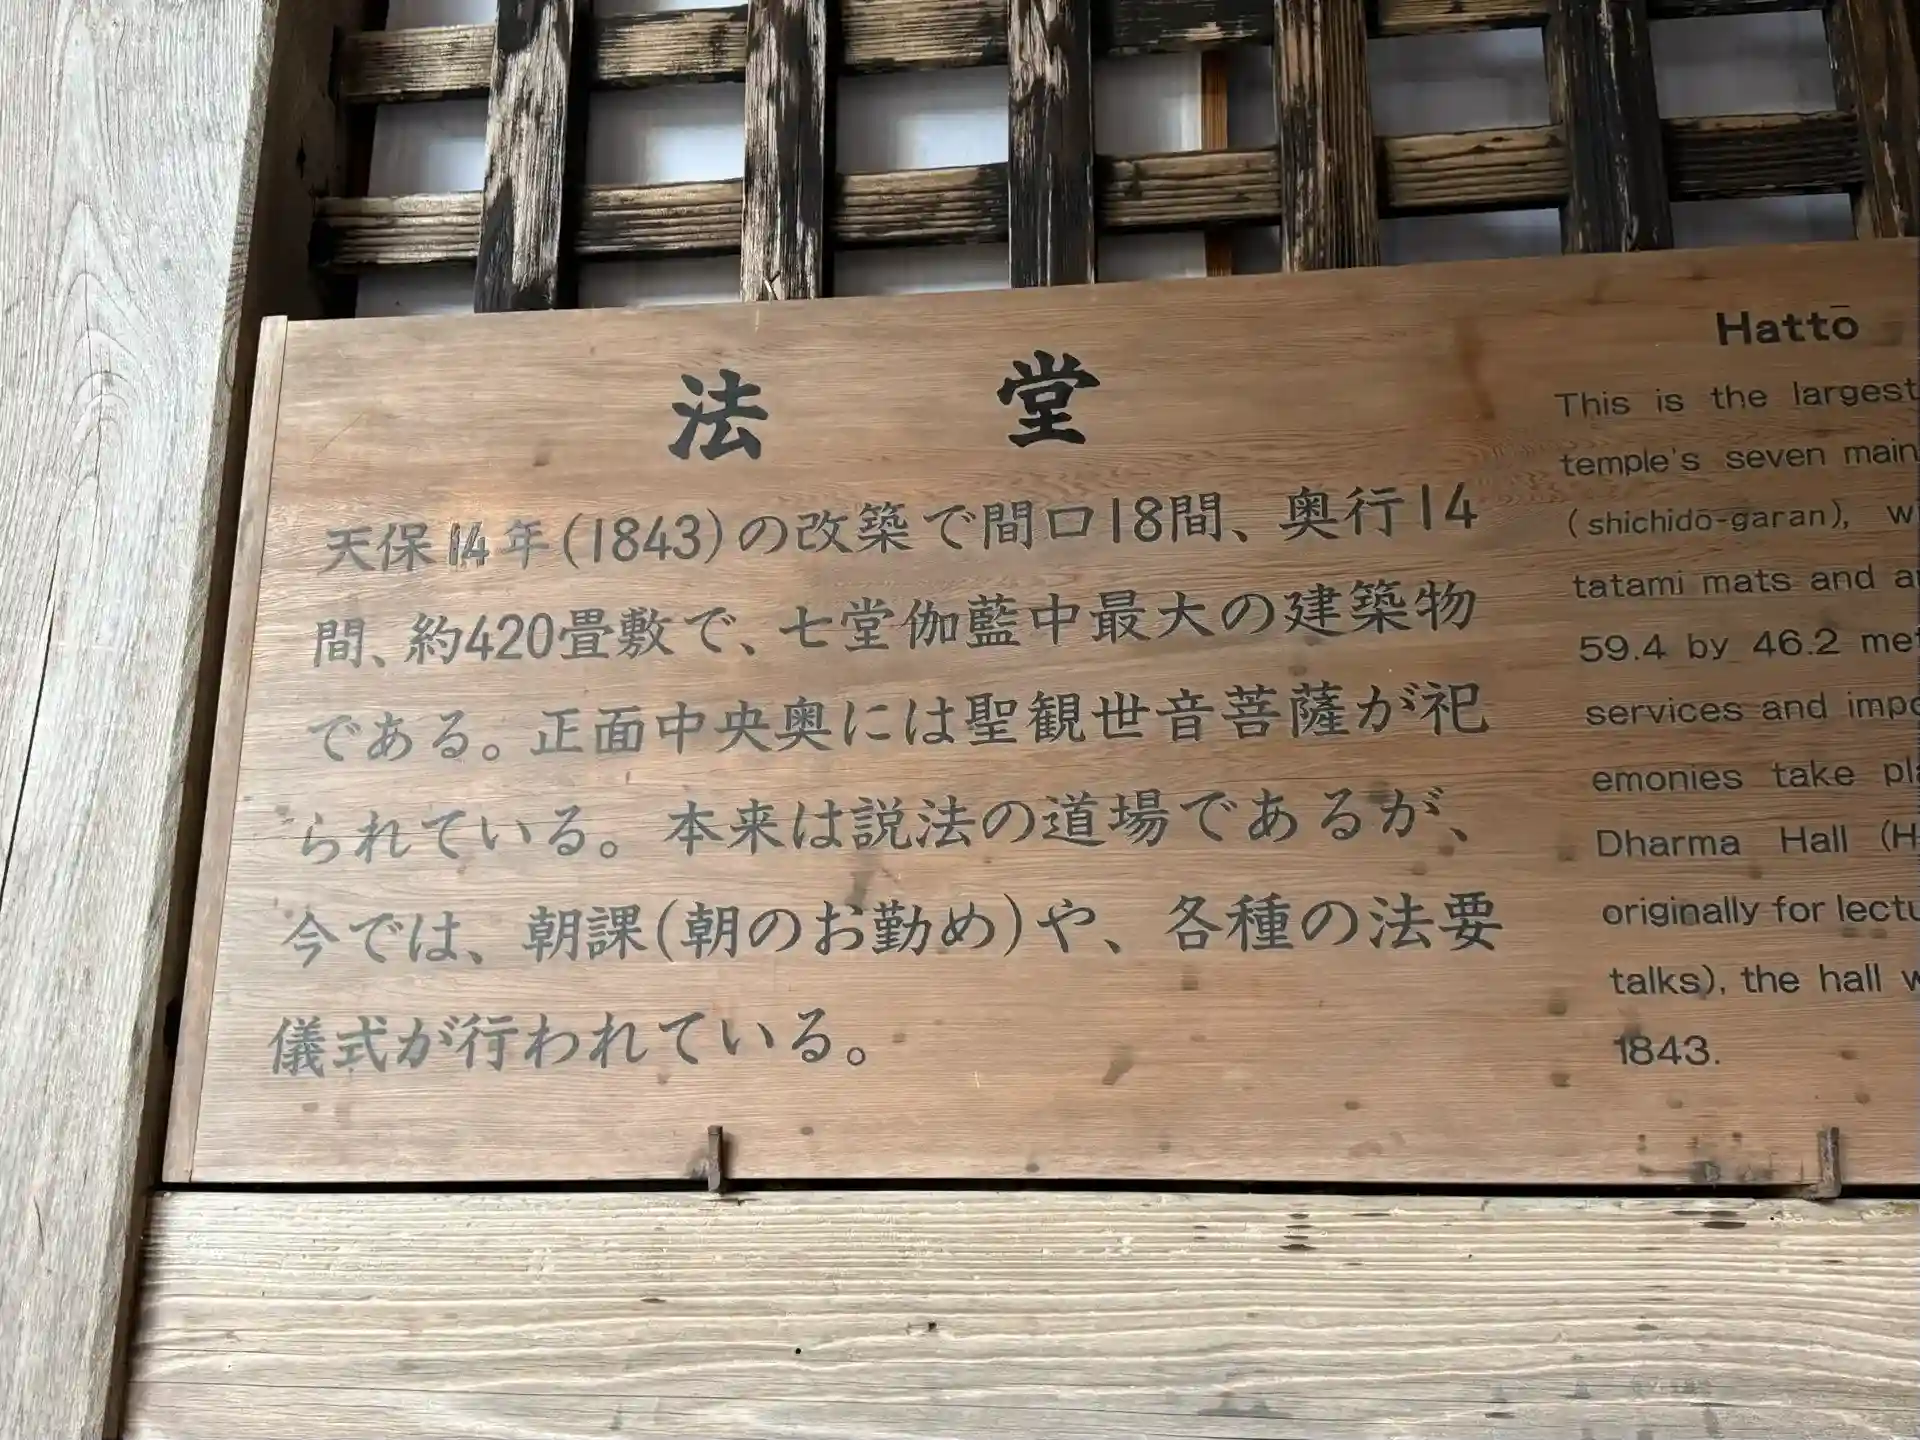 法堂
天保14年(1843)の改築で間口18間、奥行14
間、約420畳敷で、七堂伽藍中最大の建築物
である。正面中央奥には聖観世音菩薩が祀
られている。本来は説法の道場であるが、
今では、朝課(朝のお勤め)や、各種の法要
儀式が行われている。
Hattō
This is the largest
temple's seven main
(shichidō-garan),
tatami mats and
59.4 by 46.2
services and
emonies take
Dharma Hall
originally for
talks), the hall
1843.